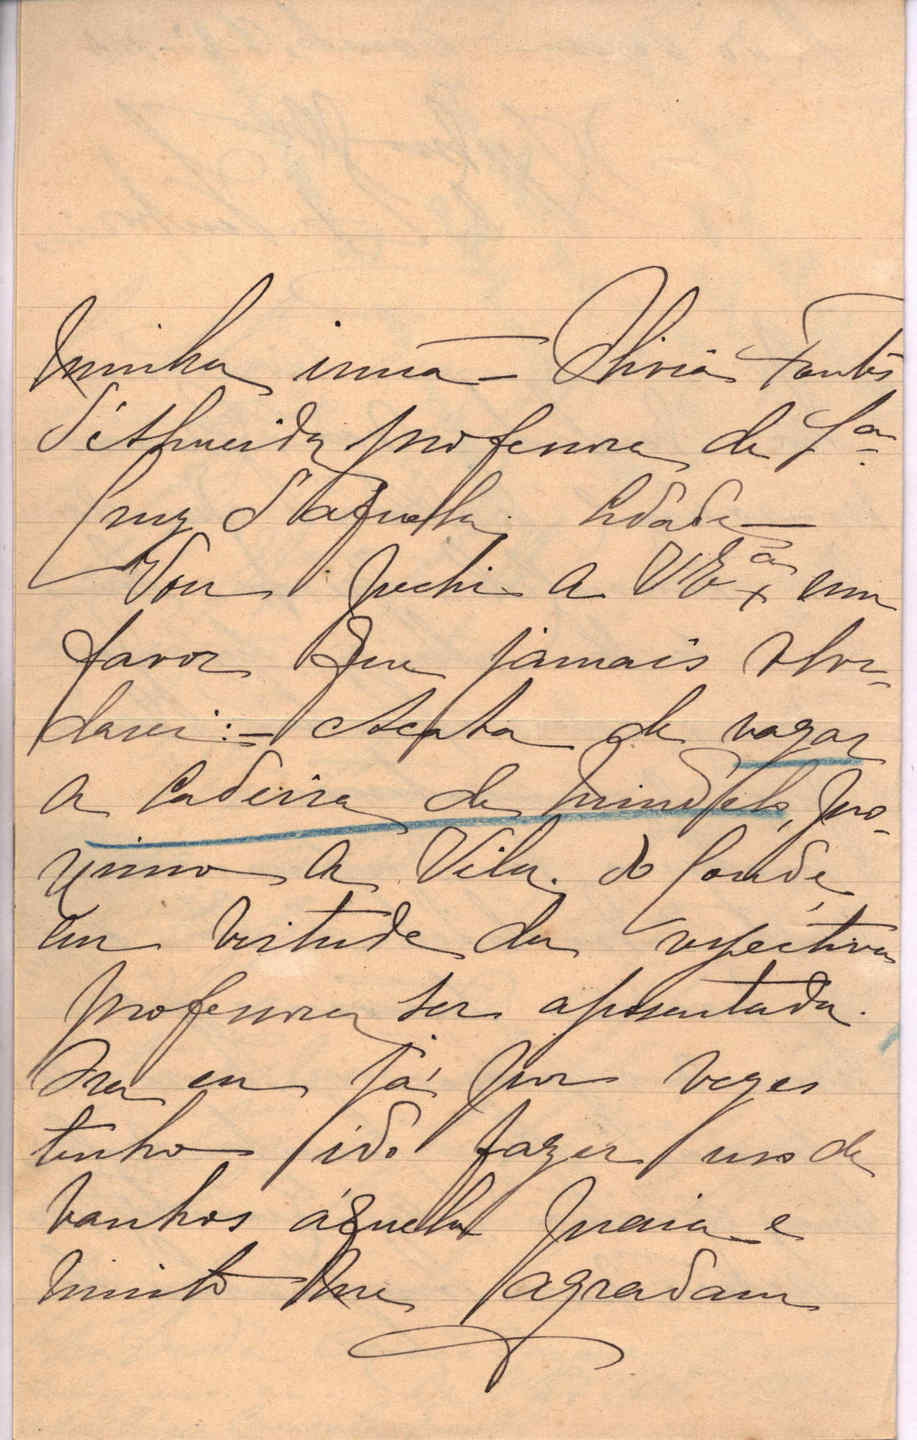 Minha irmã – Olivia Fontes
d'Almeida, professora de S.ta
Cruz d'aquella Cidade –
Vou pedir a V. Ex.ª um
favor que jamais olvi-
darei: – Acaba de vagar
a Cadeira de Mindello, pro-
ximo a Vila do Conde,
em virtude da respectiva
professora ser aposentada.
Ora eu já por vezes
tenho ido fazer uso de
banhos áquella praia e
muito me agradam